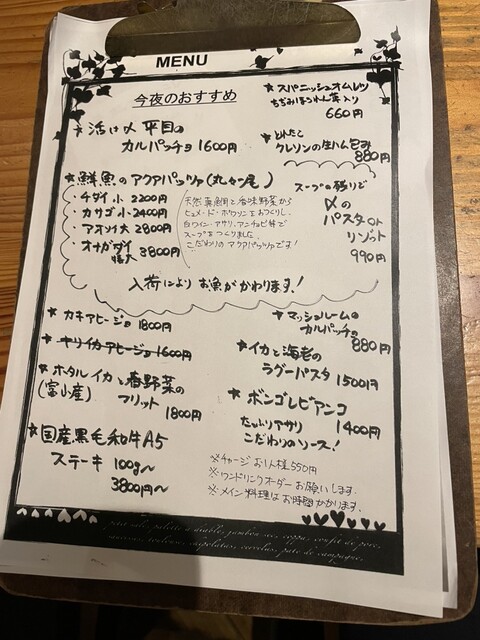 MENU
今夜のおすすめ
★ 活け〆 平目の
カルパッチョ 1600円
★ 鮮魚のアクアパッツァ(丸々一尾)
・チダイ 小 2200円
・カサゴ 小 2400円
・アオソイ 大 2800円
・オナガダイ 特大 3800円
天然真鯛と香味野菜から
ヒュメ・ド・ポワソンをおつくりし、
白ワイン・アサリ、アンチョビ等で
スープをつくりました。
こだわりのアクアパッツァです!
入荷により お魚がかわります!
★ カキアヒージョ 1800円
★ ヤリイカアヒージョ 1600円
★ ホタルイカと春野菜の
(富山産) フリット
1800円
★ 国産黒毛和牛A5
ステーキ 100g〜
3800円〜
★ スパニッシュオムレツ
ちぢみほうれん草入り
660円
★ とれたて
クレソンの生ハム包み
880円
スープの残りで
〆の
パスタor
リゾット
990円
★ マッシュルームの
カルパッチョ
880円
★ イカと海老の
ラグーパスタ 1500円
★ ボンゴレビアンコ
たっぷりアサリ 1400円
こだわりのソース!
※チャージ お1人様550円
※ワンドリンクオーダーお願いします。
※メイン料理はお時間かかります。